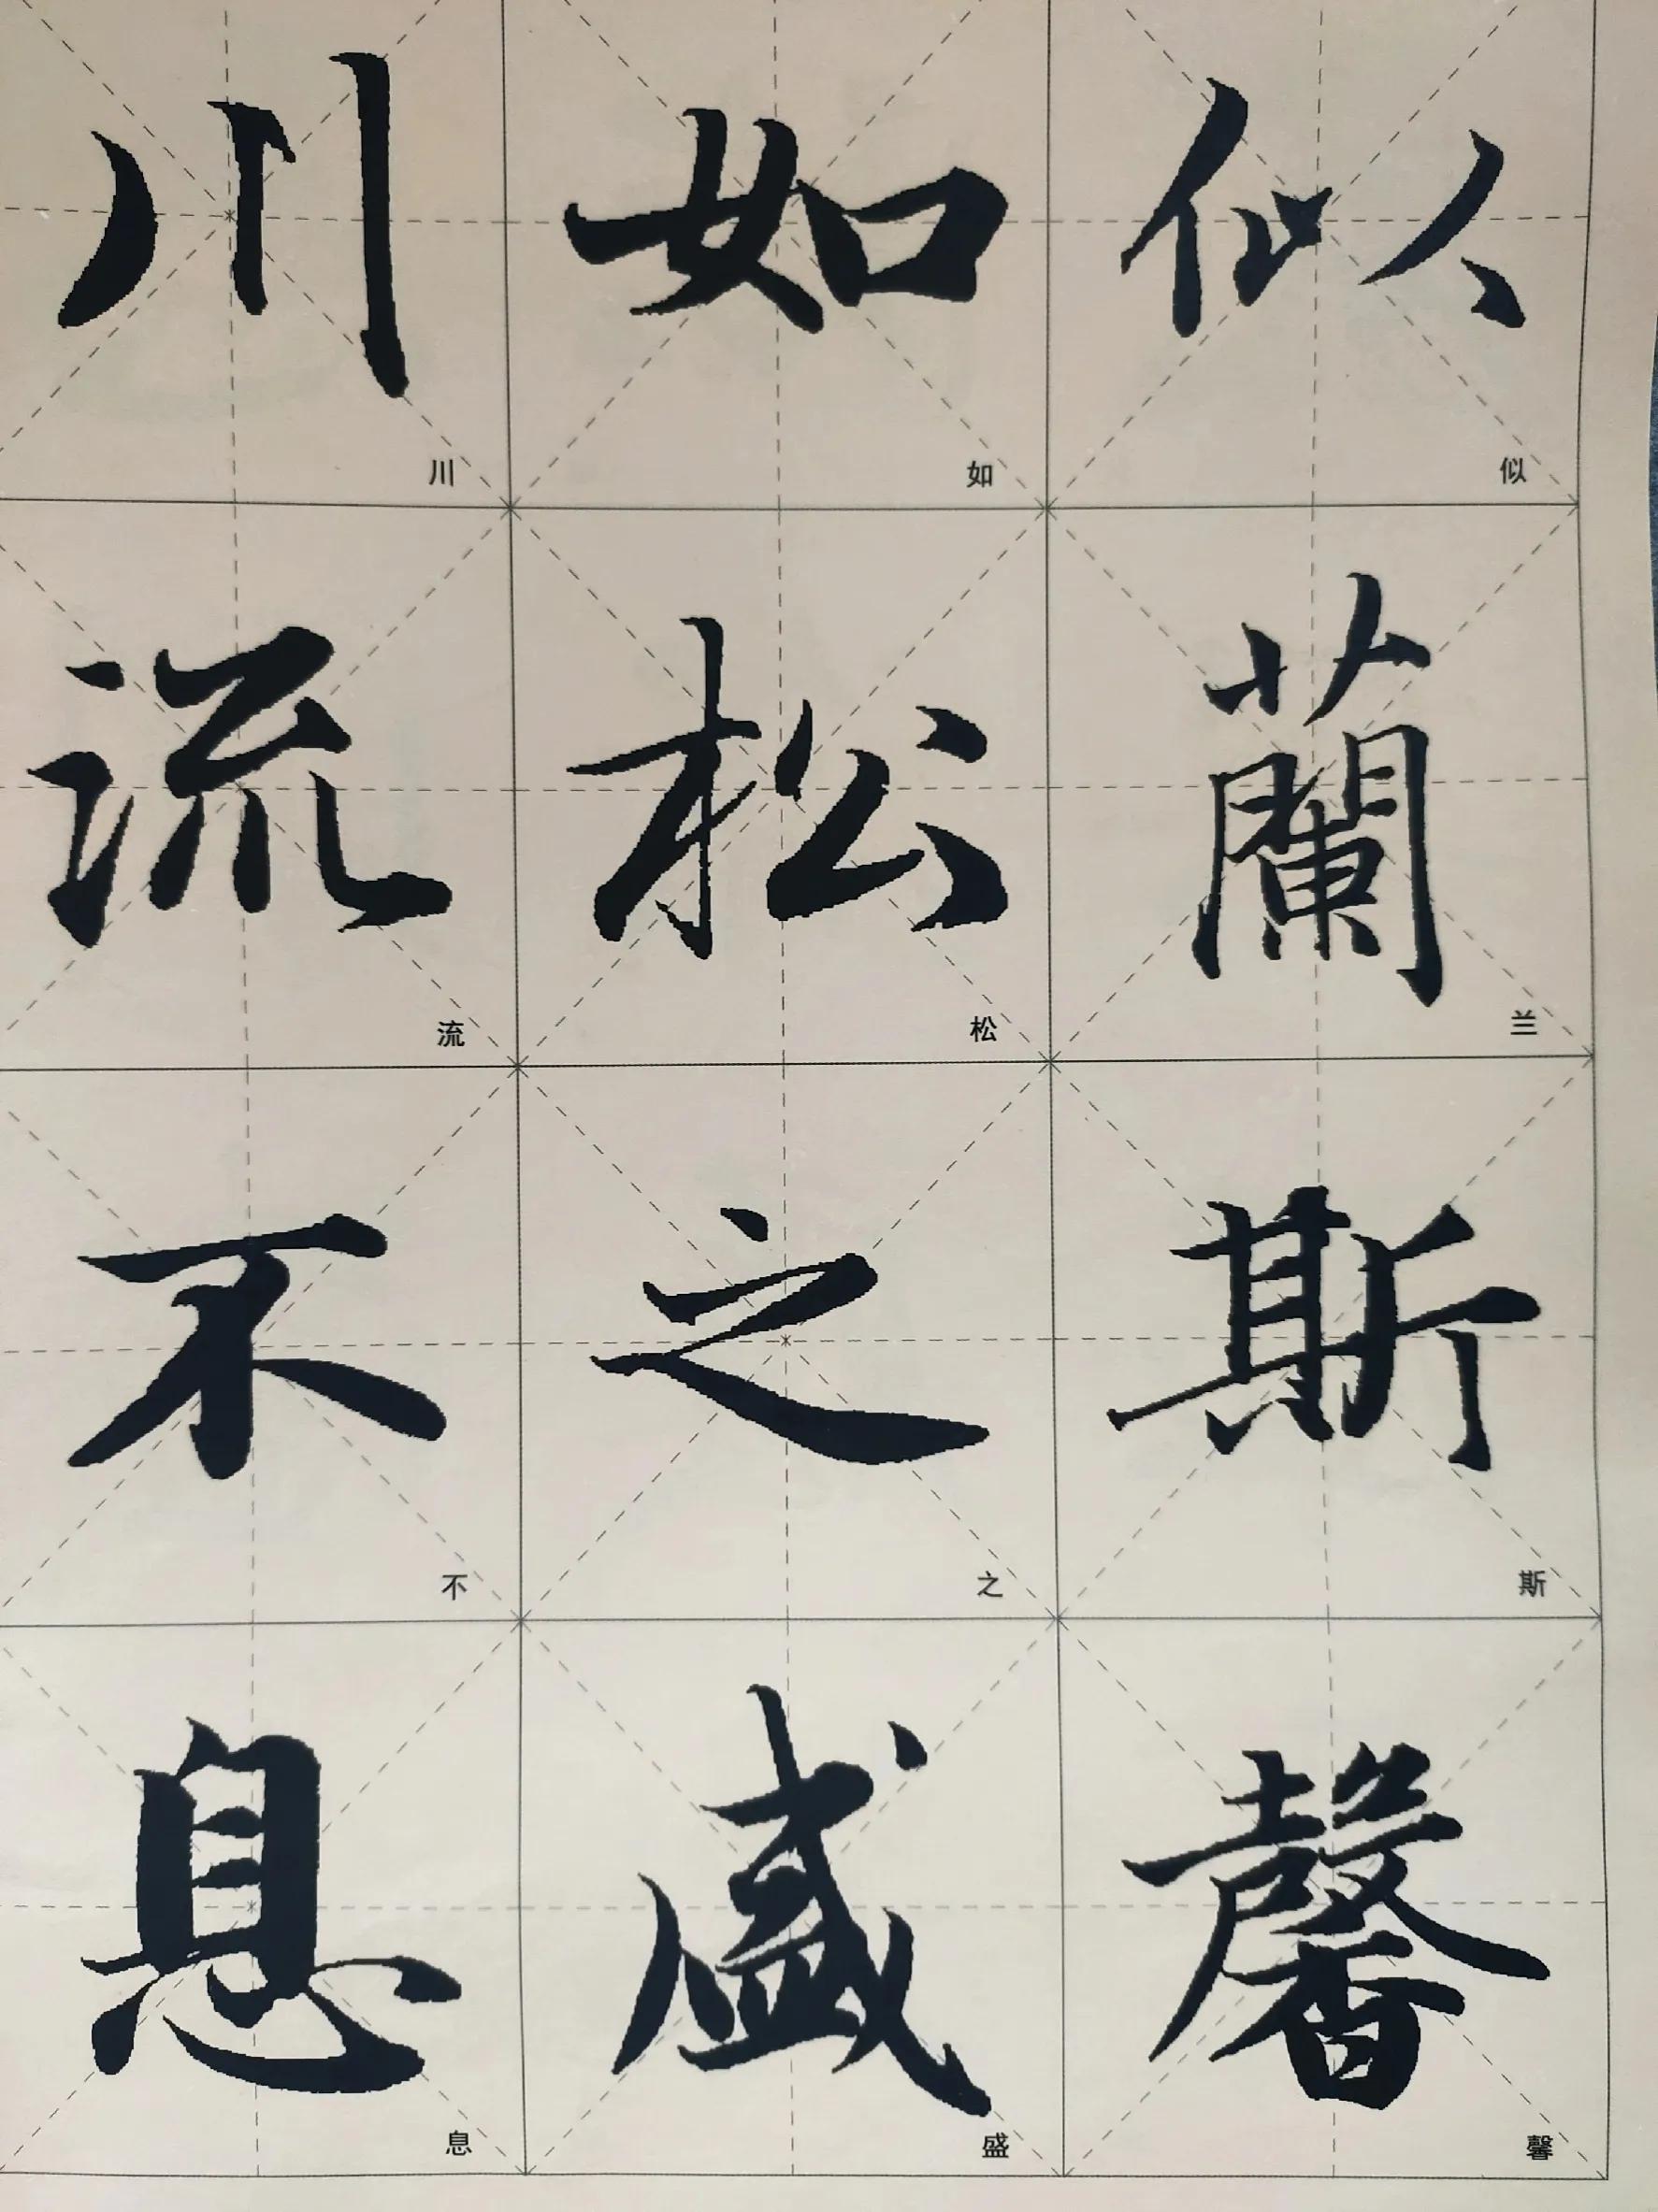 似兰斯馨
似蘭斯馨
如松之盛
如松之盛
川流不息
川流不息